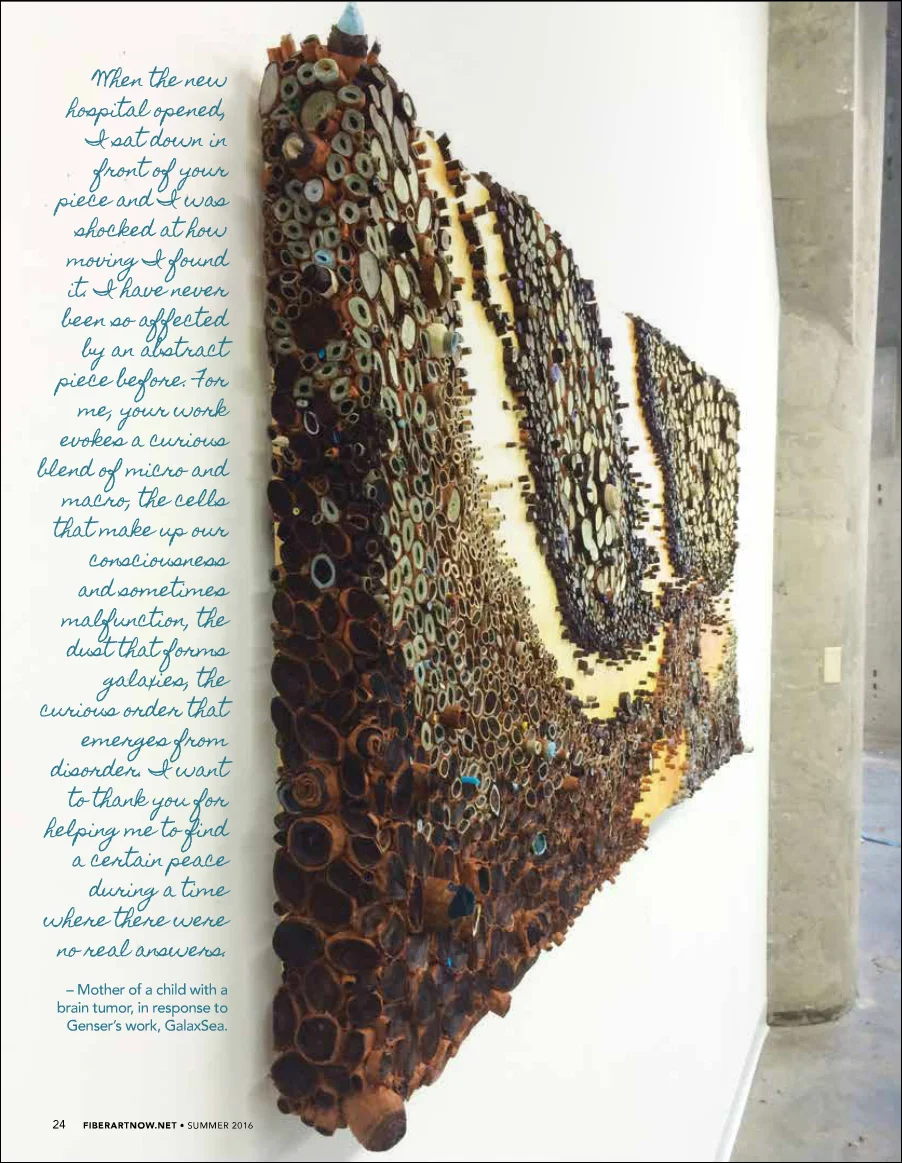 When the new
hospital opened,
I sat down in
front of your
piece and I was
shocked at how
moving I found
it. I have never
been so affected
by an abstract
piece before. For
me, your work
evokes a curious
blend of micro and
macro, the cells
that make up our
consciousness
and sometimes
malfunction, the
dust that forms
galaxies, the
curious order that
emerges from
disorder. I want
to thank you for
helping me to find
a certain peace
during a time
where there were
no real answers.
– Mother of a child with a
brain tumor, in response to
Genser's work, GalaxSea.
24 FIBERARTNOW.NET • SUMMER 2016